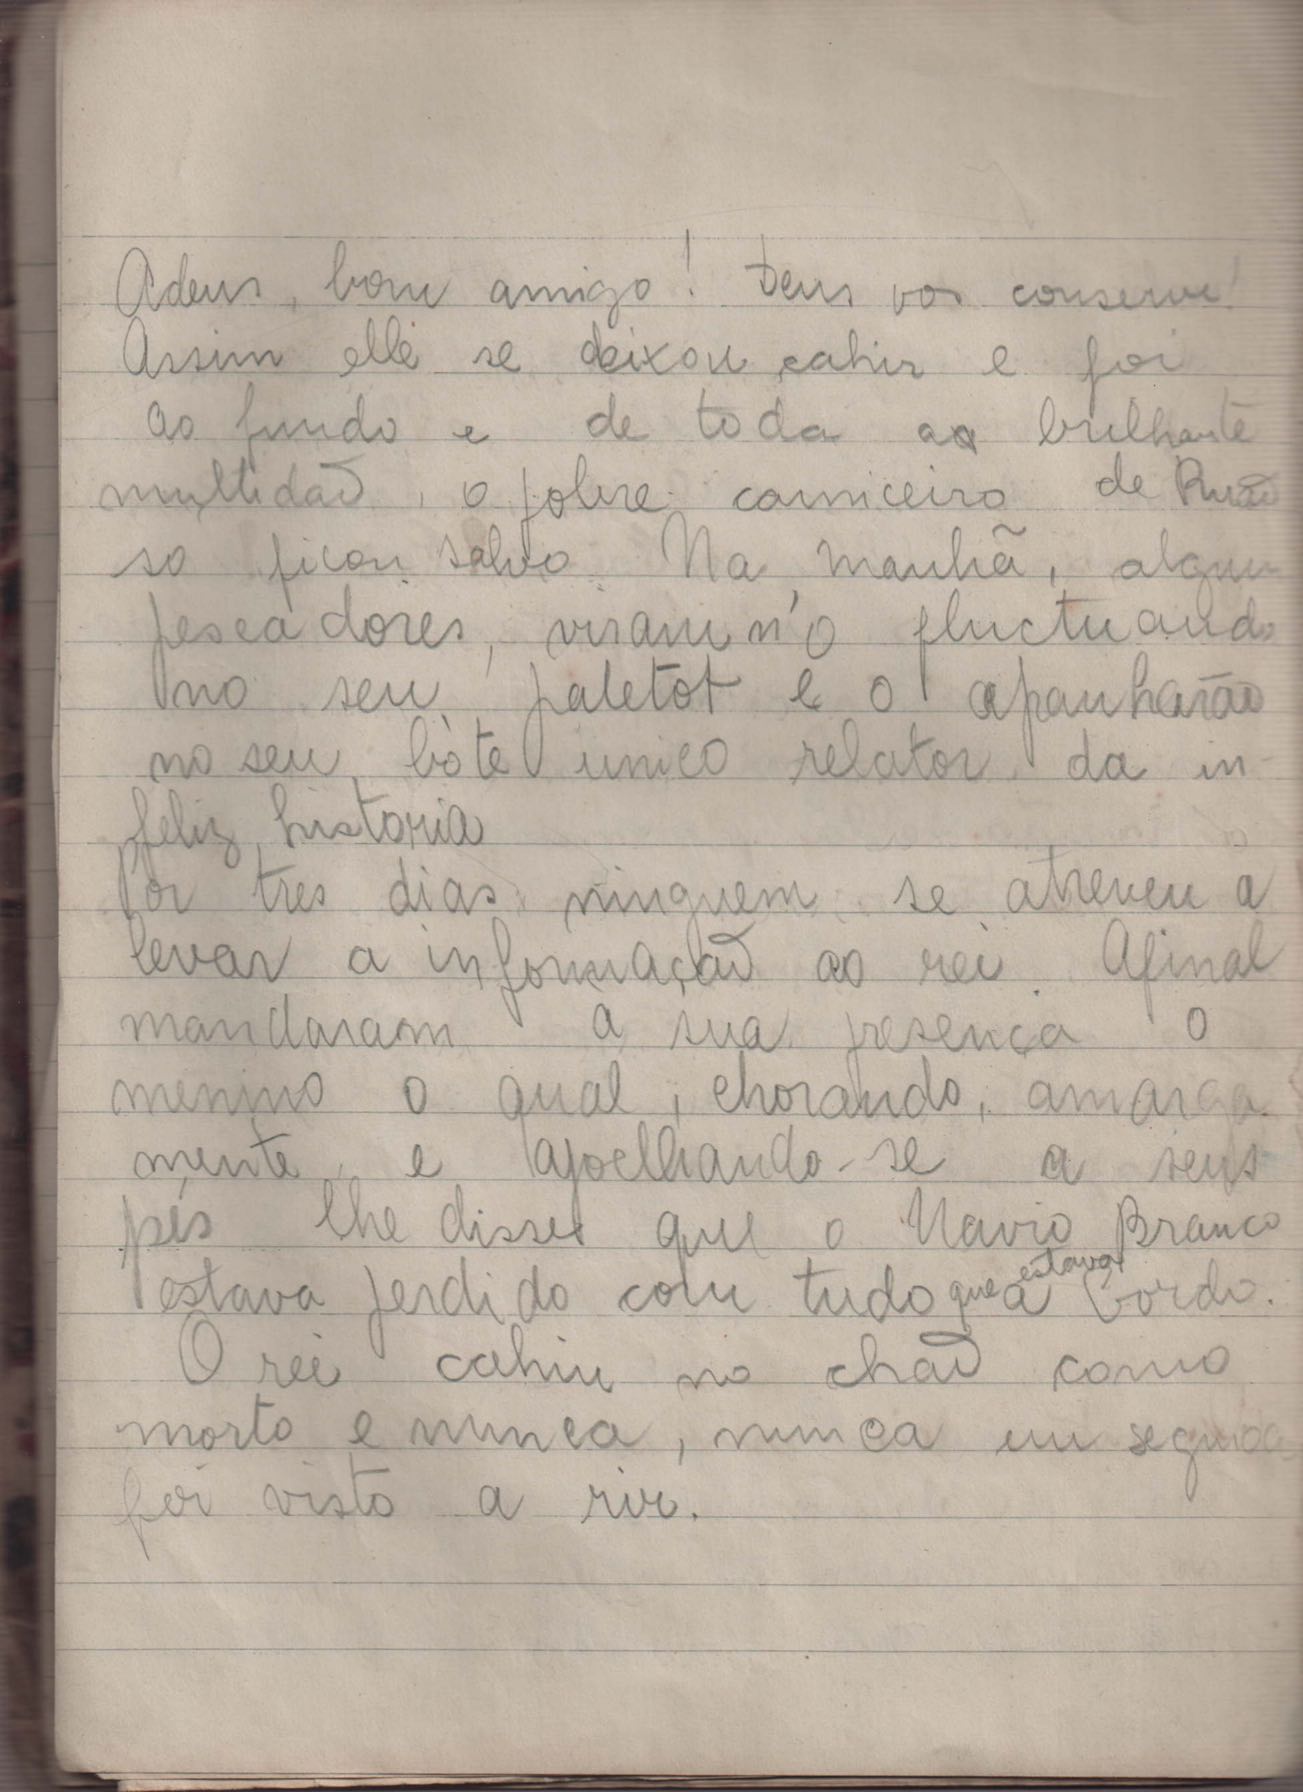 Adeus, bom amigo! Deus vos conserve!
Assim elle se deixou cahir e foi
ao fundo e de toda a brilhante
multidaõ, o pobre carniceiro de Ruão
so ficou salvo. Na manhã, algun
pescadores, viram n'o fluctuando
no seu paletot e o apanharão
no seu bóte unico relator da in-
feliz historia
Por tres dias ninguem se atreveu a
levar a informaçaõ ao rei. Afinal
mandaram a sua presença o
menino o qual, chorando, amarga
mente, e ajoelhando-se a seus
pés lhe disse que o Navio Branco
estava perdido com tudo que estava a bordo.
O rei cahiu no chaõ como
morto e nunca, nunca em seguida
foi visto a rir.